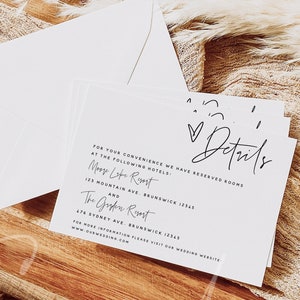 Details
FOR YOUR CONVENIENCE WE HAVE RESERVED ROOMS
AT THE FOLLOWING HOTELS:
Moose Lake Resort
123 MOUNTAIN AVE. BRUNSWICK 12345
and
The Garden Resort
676 SYDNEY AVE. BRUNSWICK 12345
FOR MORE INFORMATION PLEASE VISIT OUR WEDDING WEBSITE
WWW.OURWEDDING.COM